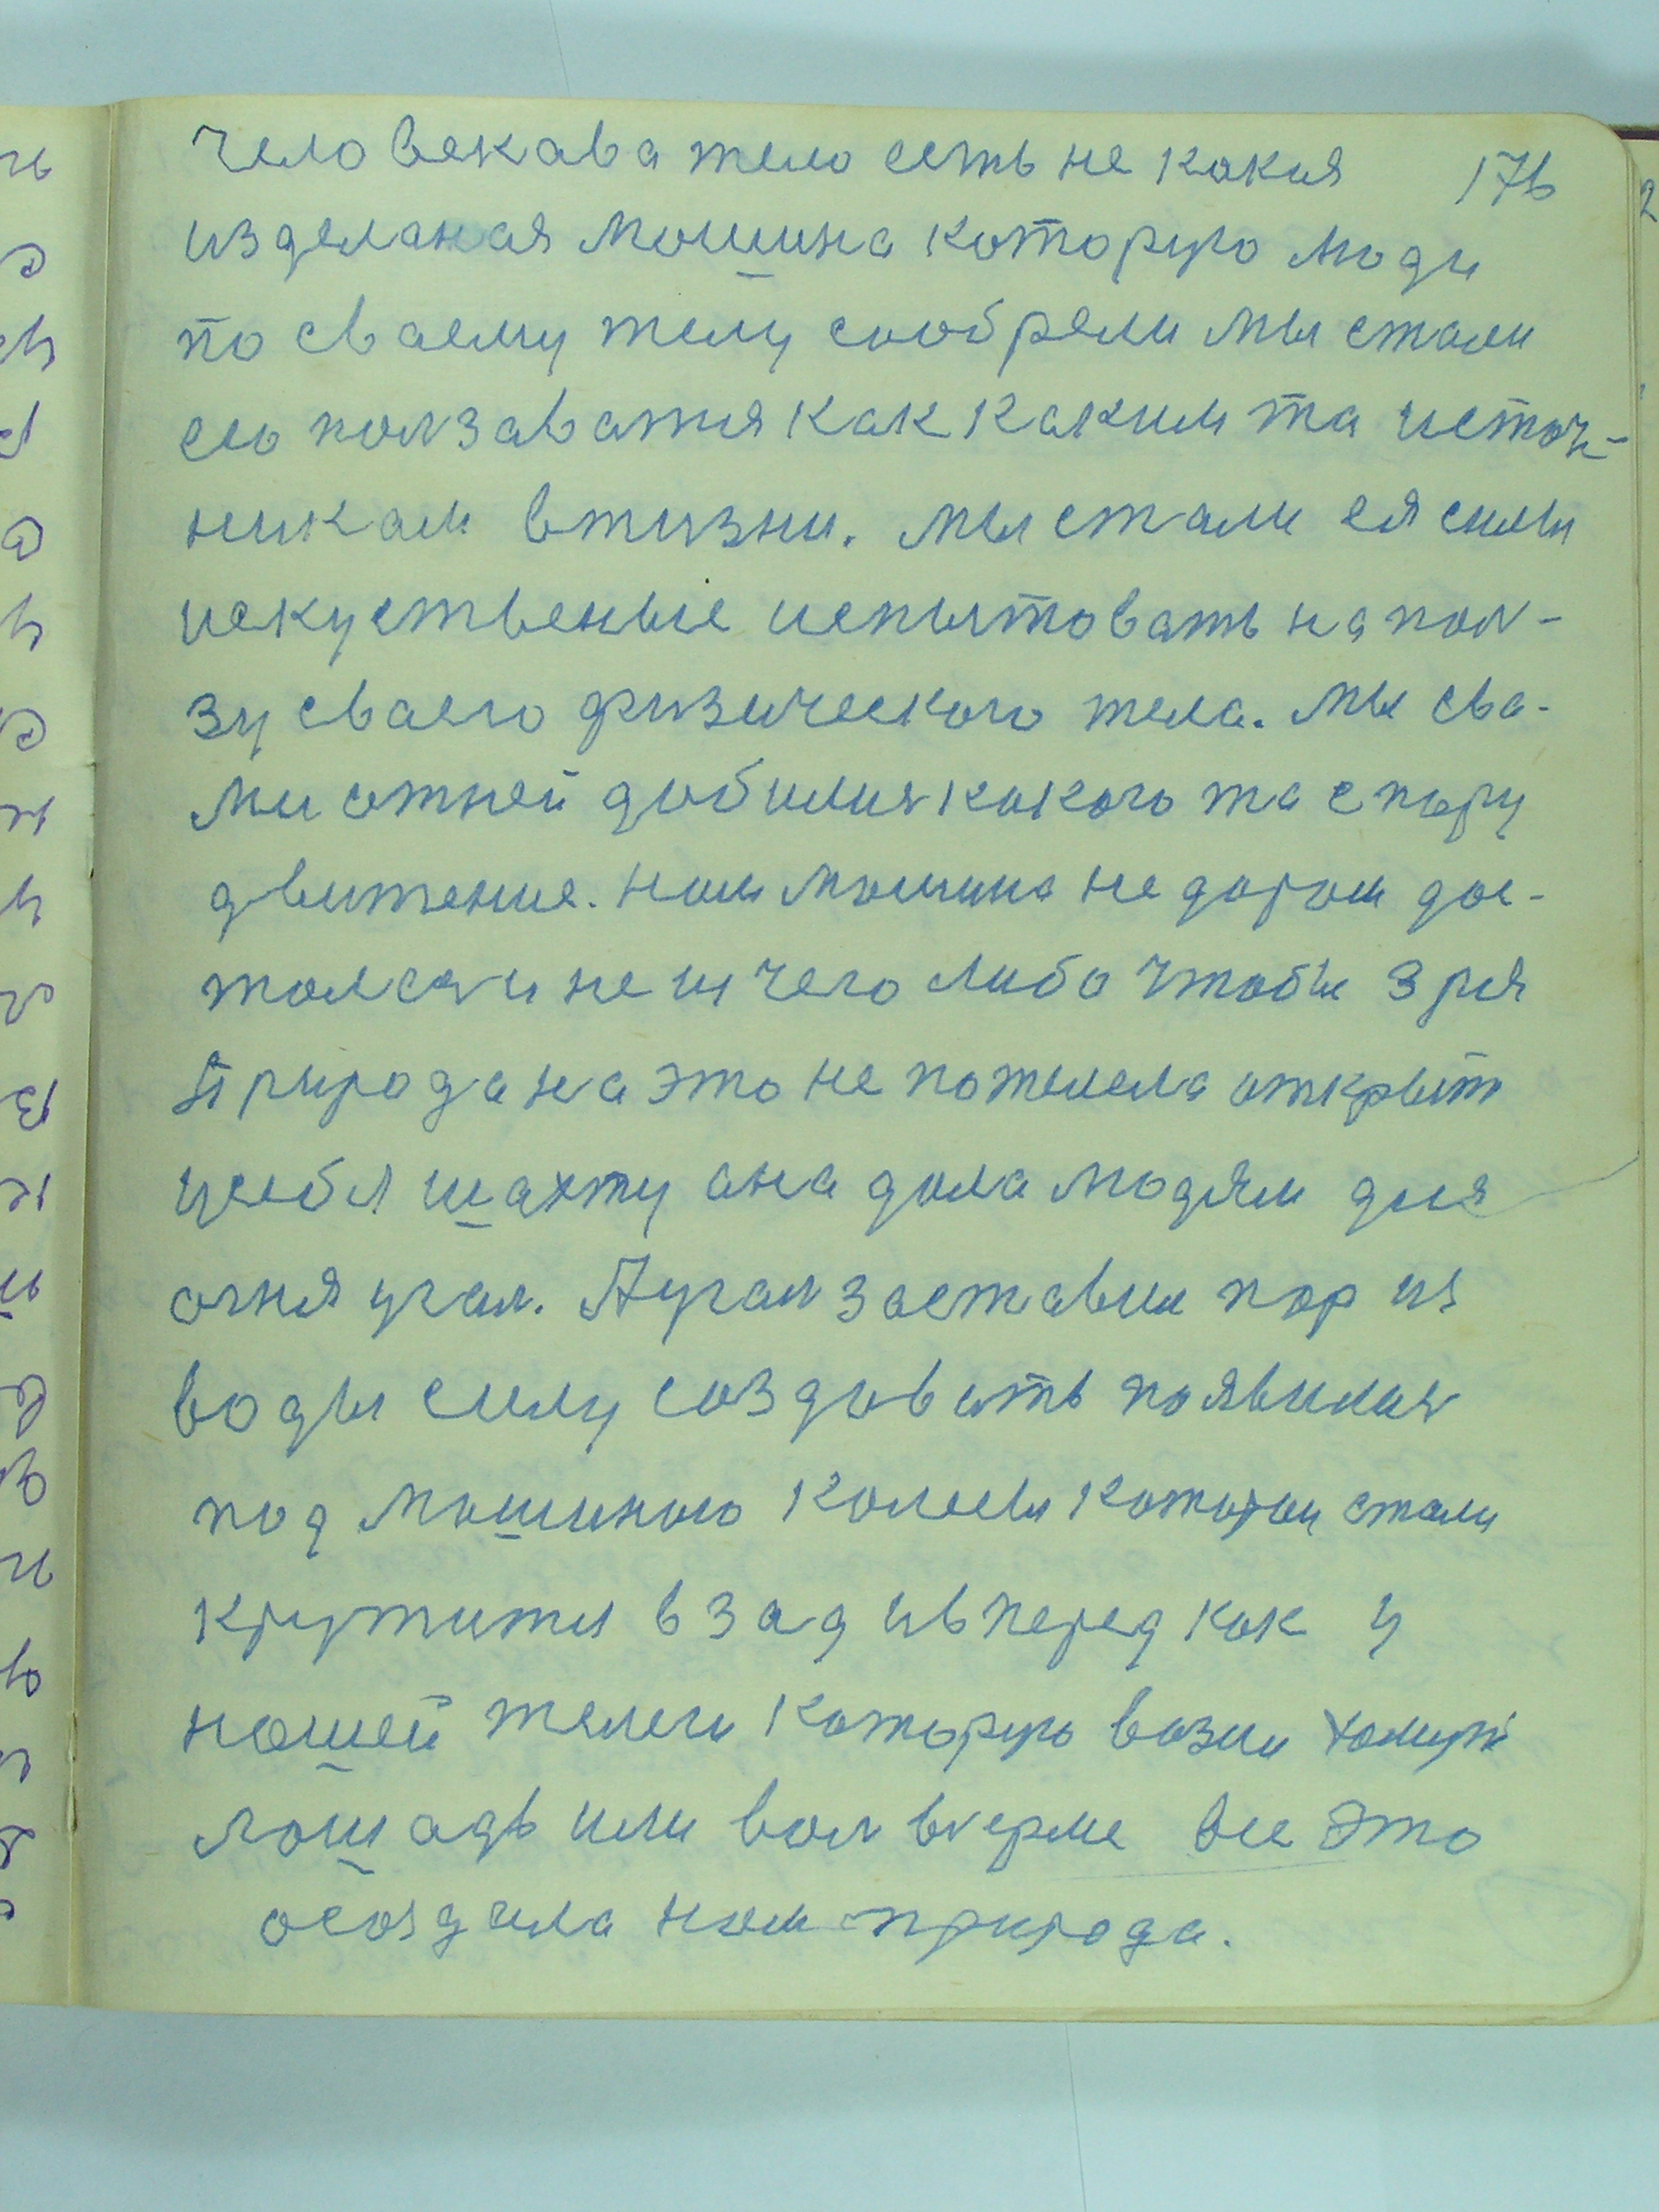 человекава тело есть не какия 176
изделаная мошина которую люди
по сваему телу сообрели мы стали
ею ползаватия как каким та источ-
никам в жизни. мы стали ея силы
искуственые испытовать на пол-
зу сваего физического тела. мы сва-
ми отней добилися какого та спору
движение. ном мошина не даром дос-
талася и не и чего либо чтобы зря
Природа на это не пожелела открыт
усебя шахту ана дала людям для
огня угал. А угал заставил пар из
воды силу создовать появился
под мошиною колесы которои стали
крутится в зад и вперед как у
нашей телеги которую возил хомут
лошадь или вол в ерме все это
осоздала ном природа.